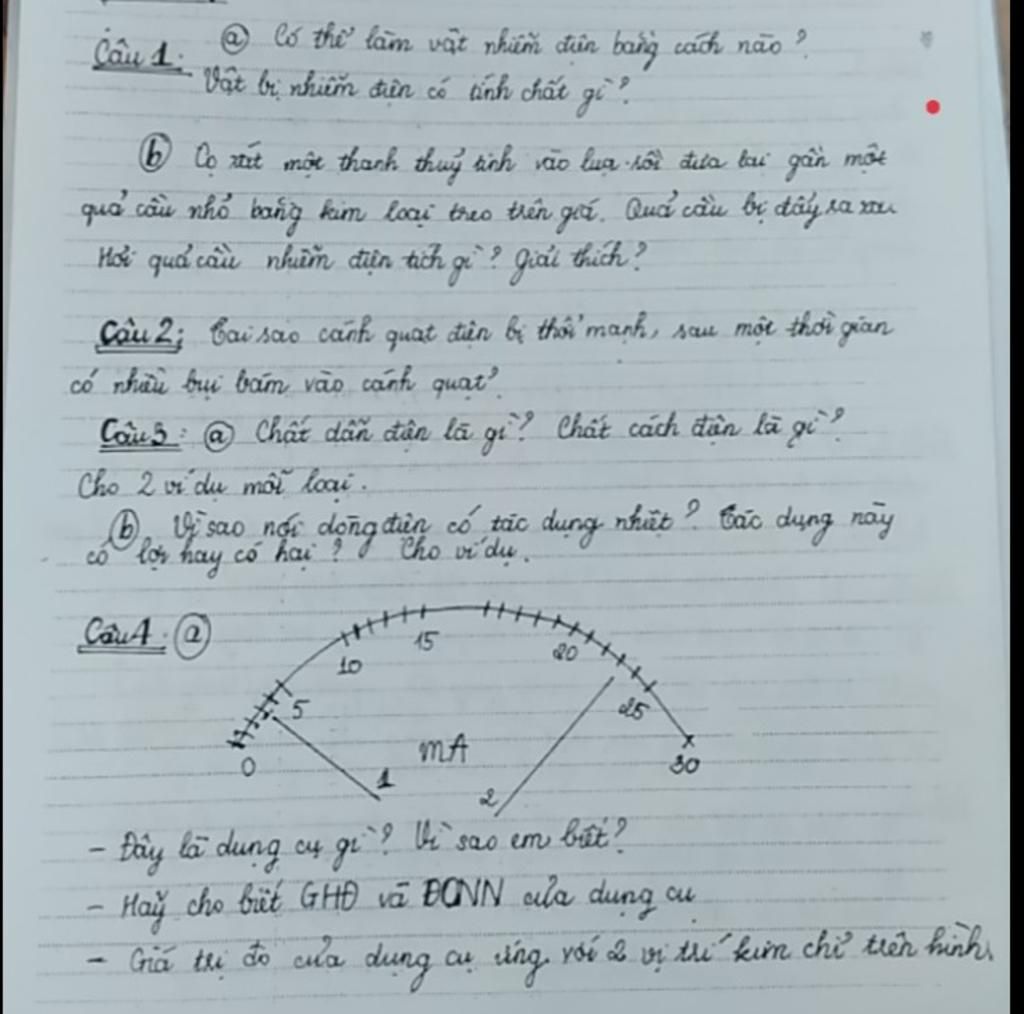 Câu 1: ⓐ Có thể làm vật nhiễm điện bằng cách nào?
Vật bị nhiễm điện có tính chất gì?
ⓑ Cọ xát một thanh thuỷ tinh vào lụa rồi đưa lại gần một
quả cầu nhỏ bằng kim loại treo trên giá. Quả cầu bị đẩy ra xa.
Hỏi quả cầu nhiễm điện tích gì? Giải thích?
Câu 2: Tại sao cánh quạt điện bị thổi mạnh, sau một thời gian
có nhiều bụi bám vào cánh quạt?
Câu 3: ⓐ Chất dẫn điện là gì? Chất cách điện là gì?
Cho 2 ví dụ mỗi loại.
ⓑ Vì sao nói dòng điện có tác dụng nhiệt? Tác dụng này
có lợi hay có hại? Cho ví dụ.
Câu 4: ⓐ
0 5 10 15 20 25 30
mA
1 2
- Đây là dụng cụ gì? Vì sao em biết?
- Hãy cho biết GHĐ và ĐCNN của dụng cụ
- Giá trị đo của dụng cụ ứng với 2 vị trí kim chỉ trên hình.